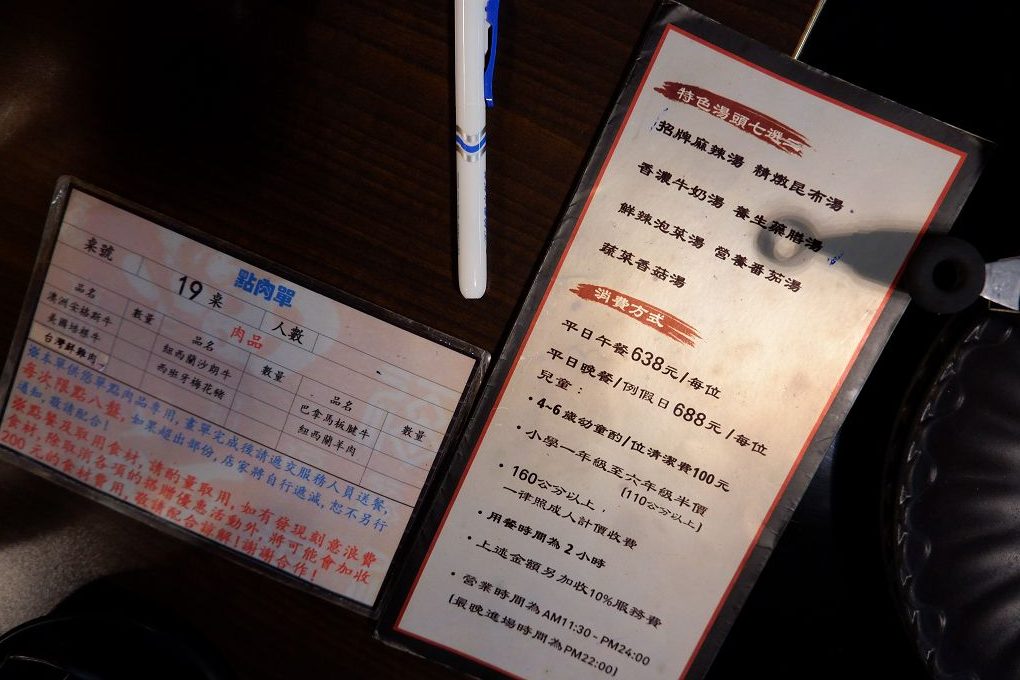 點肉單
桌號 19桌 人數
肉品
品名 數量 品名 數量 品名 數量
澳洲安格斯牛 紐西蘭沙朗牛 巴拿馬板腱牛
美國培根牛 西班牙梅花豬 紐西蘭羊肉
台灣鮮雞肉
※本單供您單點肉品專用,畫單完成後請遞交服務人員送餐,
每次限點八盤,如果超出部份,店家將自行遞減,恕不另行
通知,敬請配合!
※點餐及取用食材,請酌量取用,如有發現刻意浪費
食材,除取消各項的搭贈優惠活動外,將可能會加收
200元的食材費用,敬請配合諒解!謝謝合作!
特色湯頭七選二
招牌麻辣湯 精燉昆布湯
香濃牛奶湯 養生藥膳湯
鮮辣泡菜湯 營養番茄湯
蔬菜香菇湯
消費方式
平日午餐638元/每位
平日晚餐/例假日688元/每位
兒童:
·4~6歲幼童酌/位清潔費100元
·小學一年級至六年級半價
(110公分以上)
·160公分以上,
一律照成人計價收費
·用餐時間為2小時
·上述金額另加收10%服務費
·營業時間為AM11:30-PM24:00
(最晚進場時間為PM22:00)